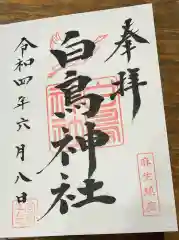 奉拝
白鳥神社
令和四年六月八日
麻生鎮座